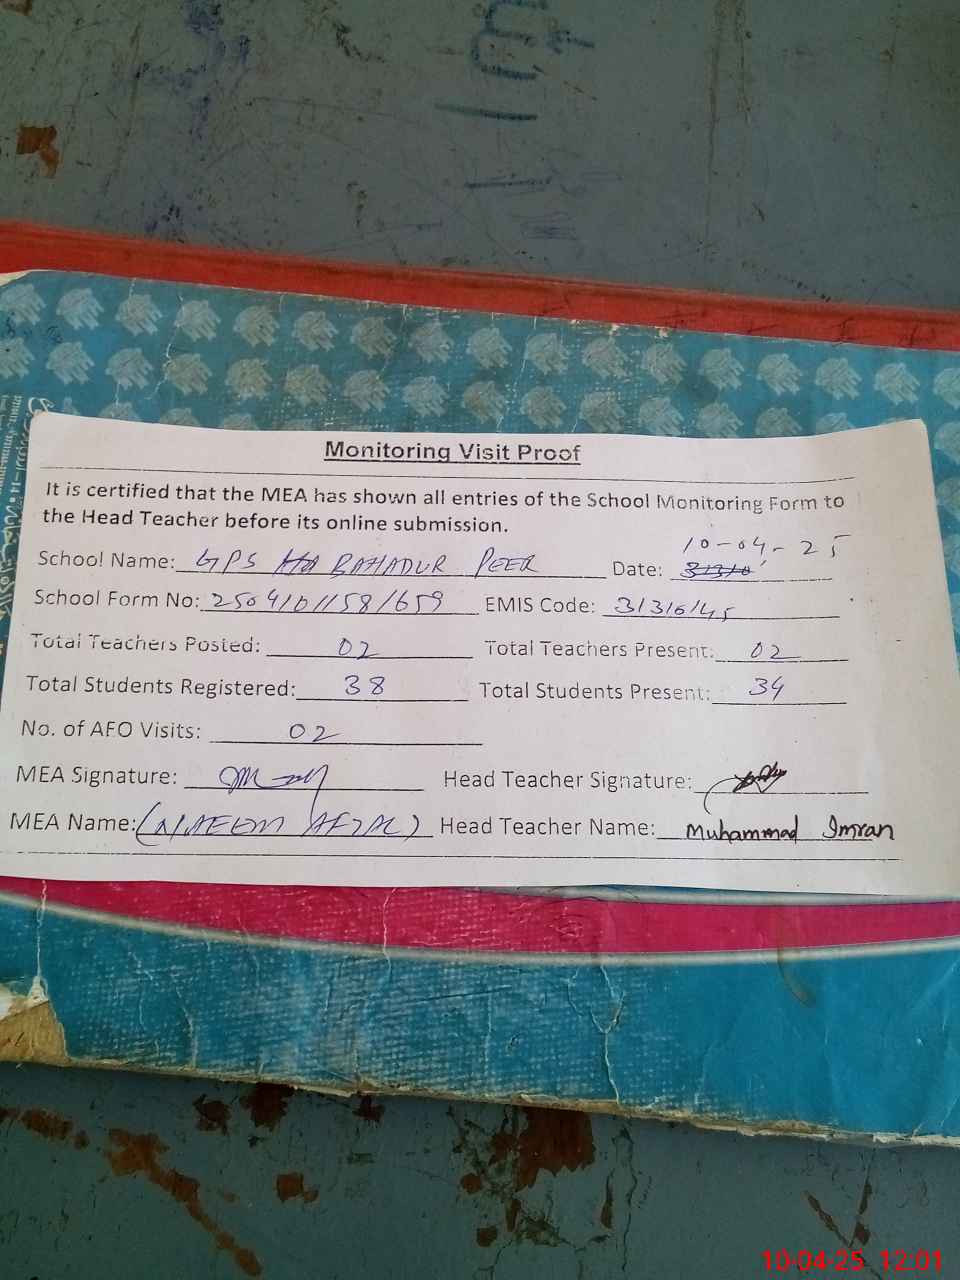 Monitoring Visit Proof
It is certified that the MEA has shown all entries of the School Monitoring Form to
the Head Teacher before its online submission.
School Name: GPS BAHADUR PEER Date: 10-04-25
School Form No: 2504101158/659 EMIS Code: 31316145
Total Teachers Posted: 02 Total Teachers Present: 02
Total Students Registered: 38 Total Students Present: 34
No. of AFO Visits: 02
MEA Signature: Head Teacher Signature:
MEA Name: (NAEEM AFZAL) Head Teacher Name: Muhammad Imran
10-04-25 12:01